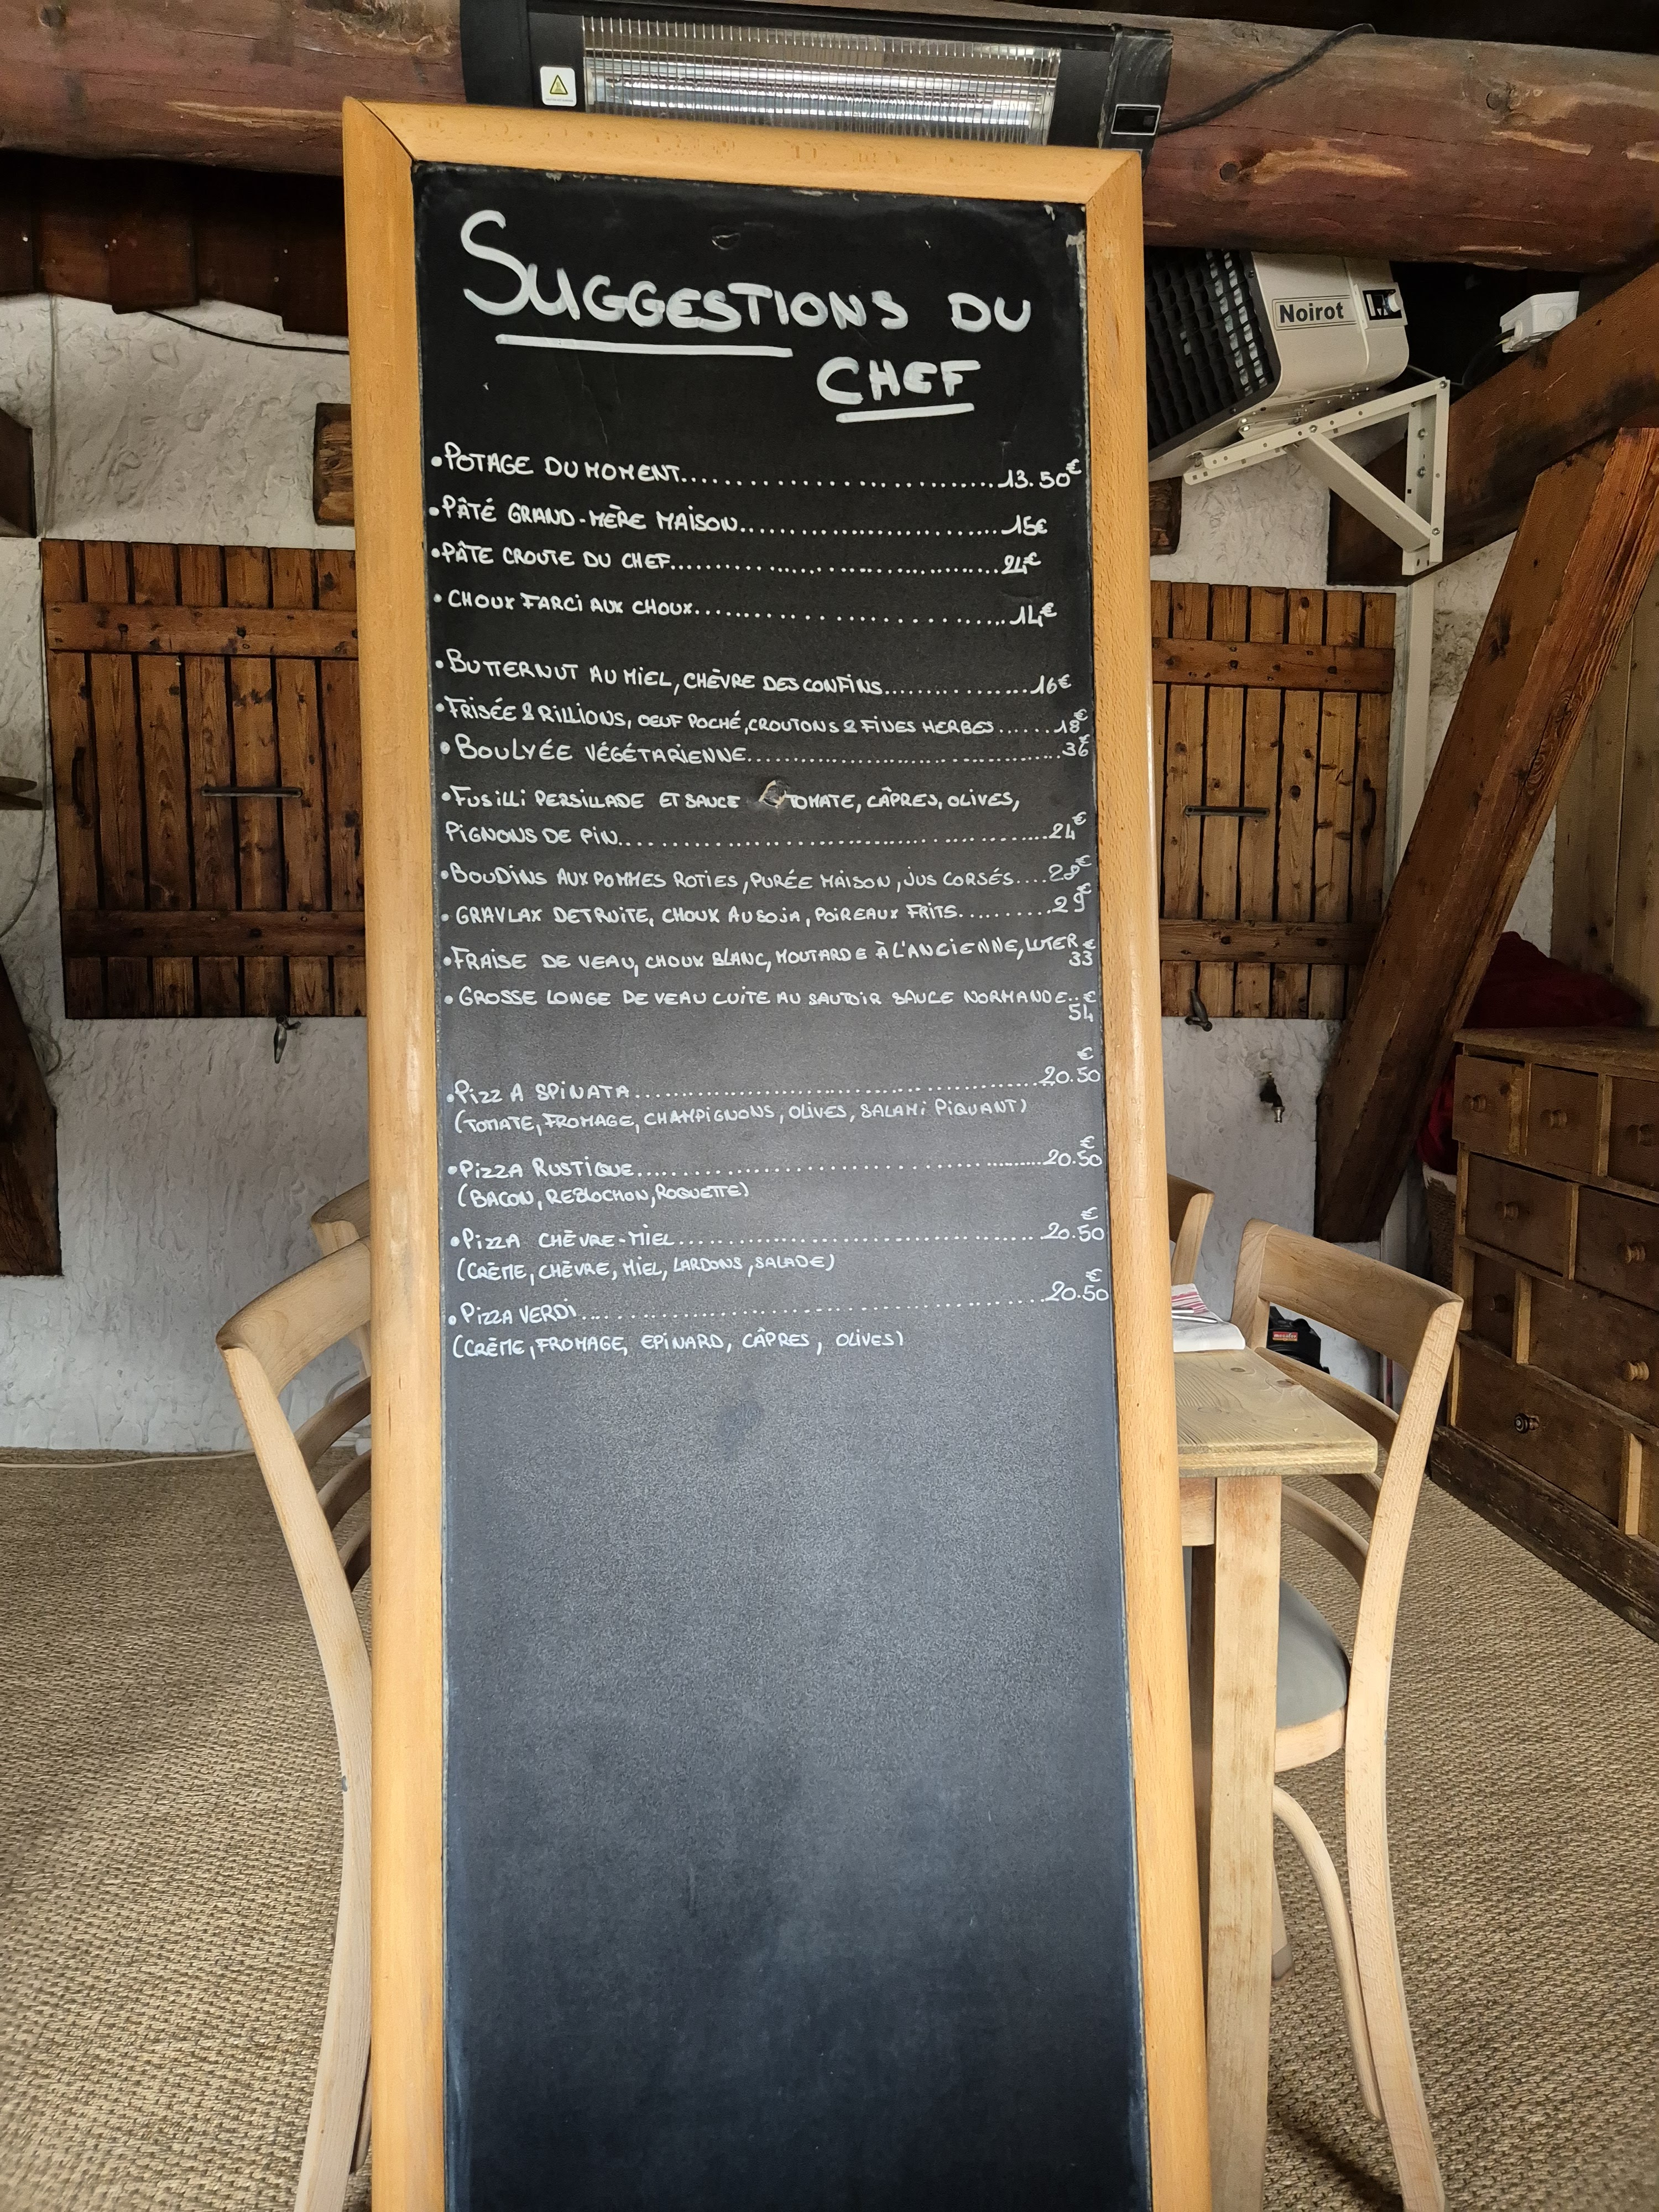 Noirot
SUGGESTIONS DU
CHEF
•POTAGE DU MOMENT..............................13.50€
•PÂTÉ GRAND-MÈRE MAISON..............................15€
•PÂTE CROUTE DU CHEF..............................24€
•CHOUX FARCI AUX CHOUX..............................14€
•BUTTERNUT AU MIEL, CHÈVRE DES CONFINS..............16€
•FRISÉE & RILLIONS, OEUF POCHÉ, CROUTONS & FINES HERBES......18€
•BOULYÉE VÉGÉTARIENNE..............................36€
•FUSILLI PERSILLADE ET SAUCE TOMATE, CÂPRES, OLIVES,
PIGNONS DE PIN..............................24€
•BOUDINS AUX POMMES ROTIES, PURÉE MAISON, JUS CORSÉS....28€
•GRAVLAX DE TRUITE, CHOUX AU SOJA, POIREAUX FRITS..........29€
•FRAISE DE VEAU, CHOUX BLANC, MOUTARDE À L'ANCIENNE, LUTER €
33
•GROSSE LONGE DE VEAU CUITE AU SAUTOIR SAUCE NORMANDE..€
54
•PIZZA SPINATA..............................20.50€
(TOMATE, FROMAGE, CHAMPIGNONS, OLIVES, SALAMI PIQUANT)
•PIZZA RUSTIQUE..............................20.50€
(BACON, REBLOCHON, ROQUETTE)
•PIZZA CHÈVRE-MIEL..............................20.50€
(CRÈME, CHÈVRE, MIEL, LARDONS, SALADE)
•PIZZA VERDI..............................20.50€
(CRÈME, FROMAGE, EPINARD, CÂPRES, OLIVES)